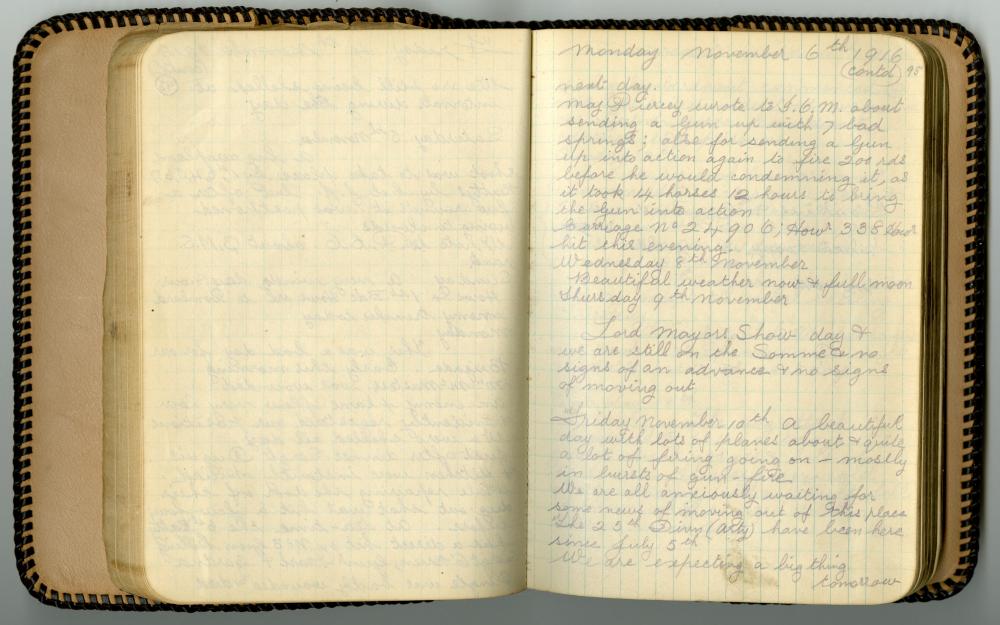 Monday November 6th 1916
(contd) 95
next day.
May Piercey wrote to I.O.M. about
sending a Gun up with 7 bad
springs; also for sending a Gun
up into action again to fire 200 rds
before he would condemning it, as
it took 14 horses 12 hours to bring
the Gun into action
Carriage No 24906; Howr 338
hit this evening.
Wednesday 8th November
Beautiful weather now & full moon
Thursday 9th November
Lord Mayors Show day &
we are still on the Somme & no
signs of an advance & no signs
of moving out
Friday November 10th A beautiful
day with lots of planes about & quite
a lot of firing going on - mostly
in bursts of gun-fire
We are all anxiously waiting for
some news of moving out of this place
The 25th Divn (Arty) have been here
since July 5th
We are expecting a big thing
tomorrow